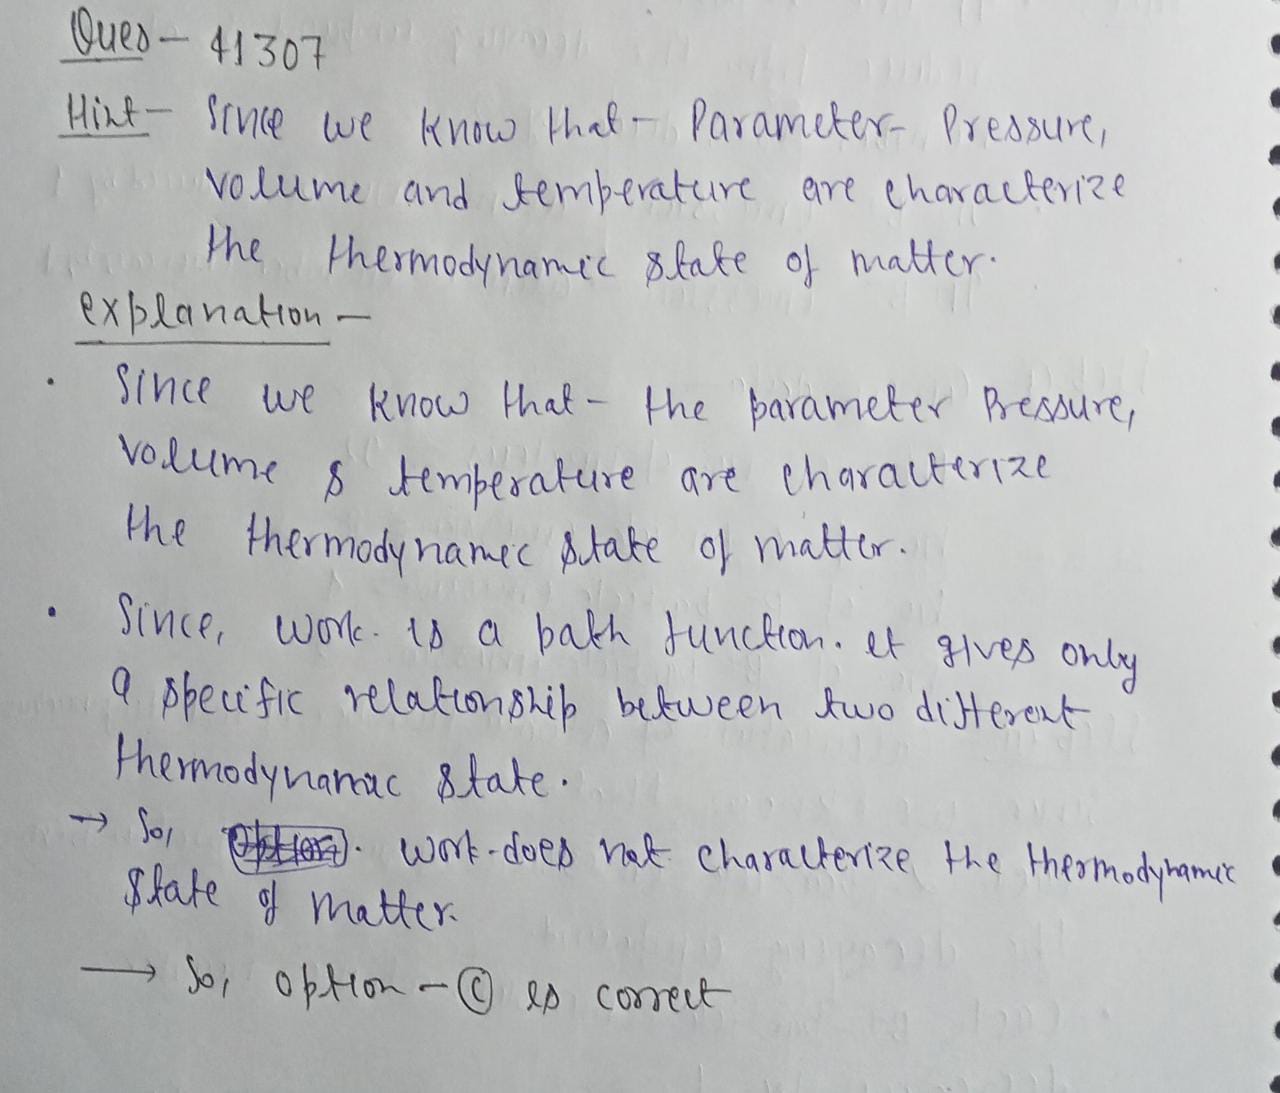 Ques - 41307
Hint - Since we know that - Parameter - Pressure,
volume and temperature are characterize
the thermodynamic state of matter.
explanation -
• Since we know that - the parameter Pressure,
volume & temperature are characterize
the thermodynamic state of matter.
• Since, work. is a path function. it gives only
a specific relationship between two different
thermodynamic state.
→ So, work-does not characterize the thermodynamic
state of matter.
→ So, option - Ⓒ is correct